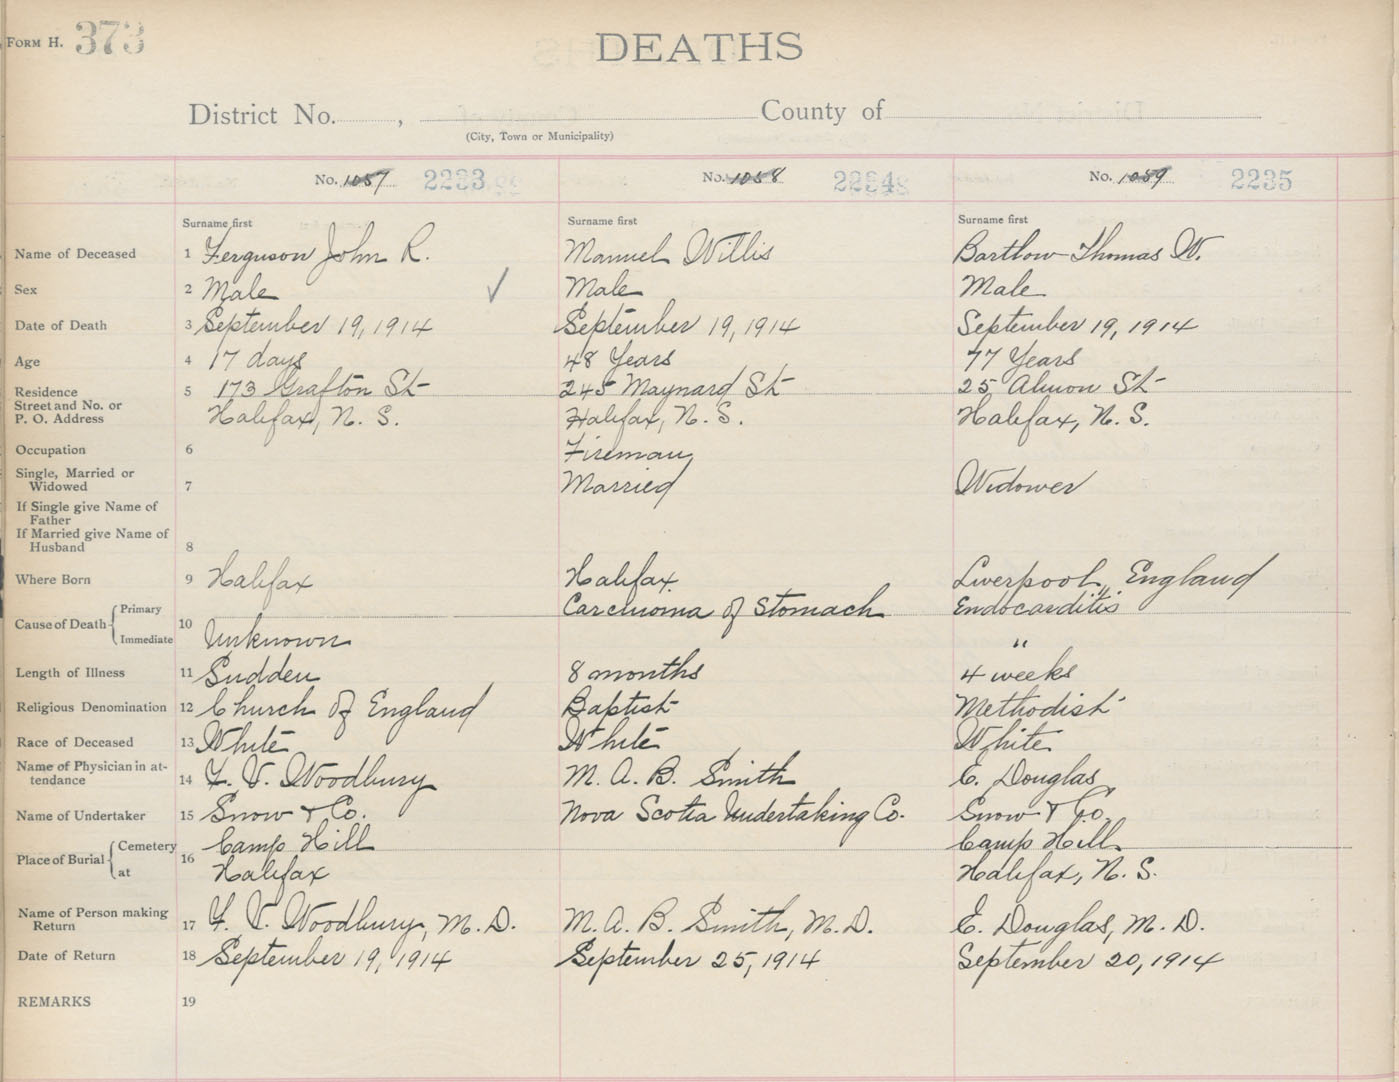 FORM H. 373
DEATHS
District No. , County of
(City, Town or Municipality)
No. 1057 2233 No. 1058 2234 No. 1059 2235
Surname first Surname first Surname first
Name of Deceased 1 Ferguson John R. Manuel Willis Bartlow Thomas W.
Sex 2 Male ✓ Male Male
Date of Death 3 September 19, 1914 September 19, 1914 September 19, 1914
Age 4 17 days 48 Years 77 Years
Residence 5 173 Grafton St 245 Maynard St 25 Almon St
Street and No. or
P. O. Address Halifax, N. S. Halifax, N. S. Halifax, N. S.
Occupation 6 Fireman
Single, Married or
Widowed 7 Married Widower
If Single give Name of
Father
If Married give Name of
Husband 8
Where Born 9 Halifax Halifax Liverpool, England
Cause of Death Primary 10 Carcinoma of Stomach Endocarditis
Immediate Unknown "
Length of Illness 11 Sudden 8 months 4 weeks
Religious Denomination 12 Church of England Baptist Methodist
Race of Deceased 13 White White White
Name of Physician in at-
tendance 14 F. V. Woodbury M. A. B. Smith E. Douglas
Name of Undertaker 15 Snow & Co. Nova Scotia Undertaking Co. Snow & Co.
Place of Burial Cemetery 16 Camp Hill Camp Hill
at Halifax Halifax, N. S.
Name of Person making
Return 17 F. V. Woodbury, M. D. M. A. B. Smith, M. D. E. Douglas, M. D.
Date of Return 18 September 19, 1914 September 25, 1914 September 20, 1914
REMARKS 19